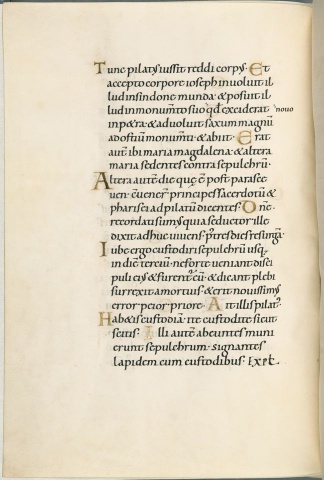 Tunc pilatus iussit reddi corpus. Et
accepto corpore ioseph inuoluit il
lud in sindone munda. & posuit il
lud in monum̄to suo qd̄ exciderat nouo
in p&ra. & aduoluit saxum magnū
ad ostiū monum̄ti. & abiit. Erat
aut̄ ibi maria magdalena. & altera
maria sedentes contra sepulchrū.
Altera autē die quę ē post parasce
uen. cuenerͭ principes sacerdotū &
pharisei ad pilatū dicentes. Dn̄e.
recordati sumus quia seductor ille
dixit adhuc uiuens. p̄ tres dies resurgā.
Iube ergo custodiri sepulchrū usq;
in diē tertiū. ne forte ueniant disci
puli eius & furent̄ eū. & dicant plebi
surrexit a mortuis. & erit nouissimus
error peior priore. Ait illis pilatꝰ.
Hab&is custodiā. ite custodite sicut
scitis. Illi autē abeuntes muni
erunt sepulchrum. signantes
lapidem cum custodibus. Expt.